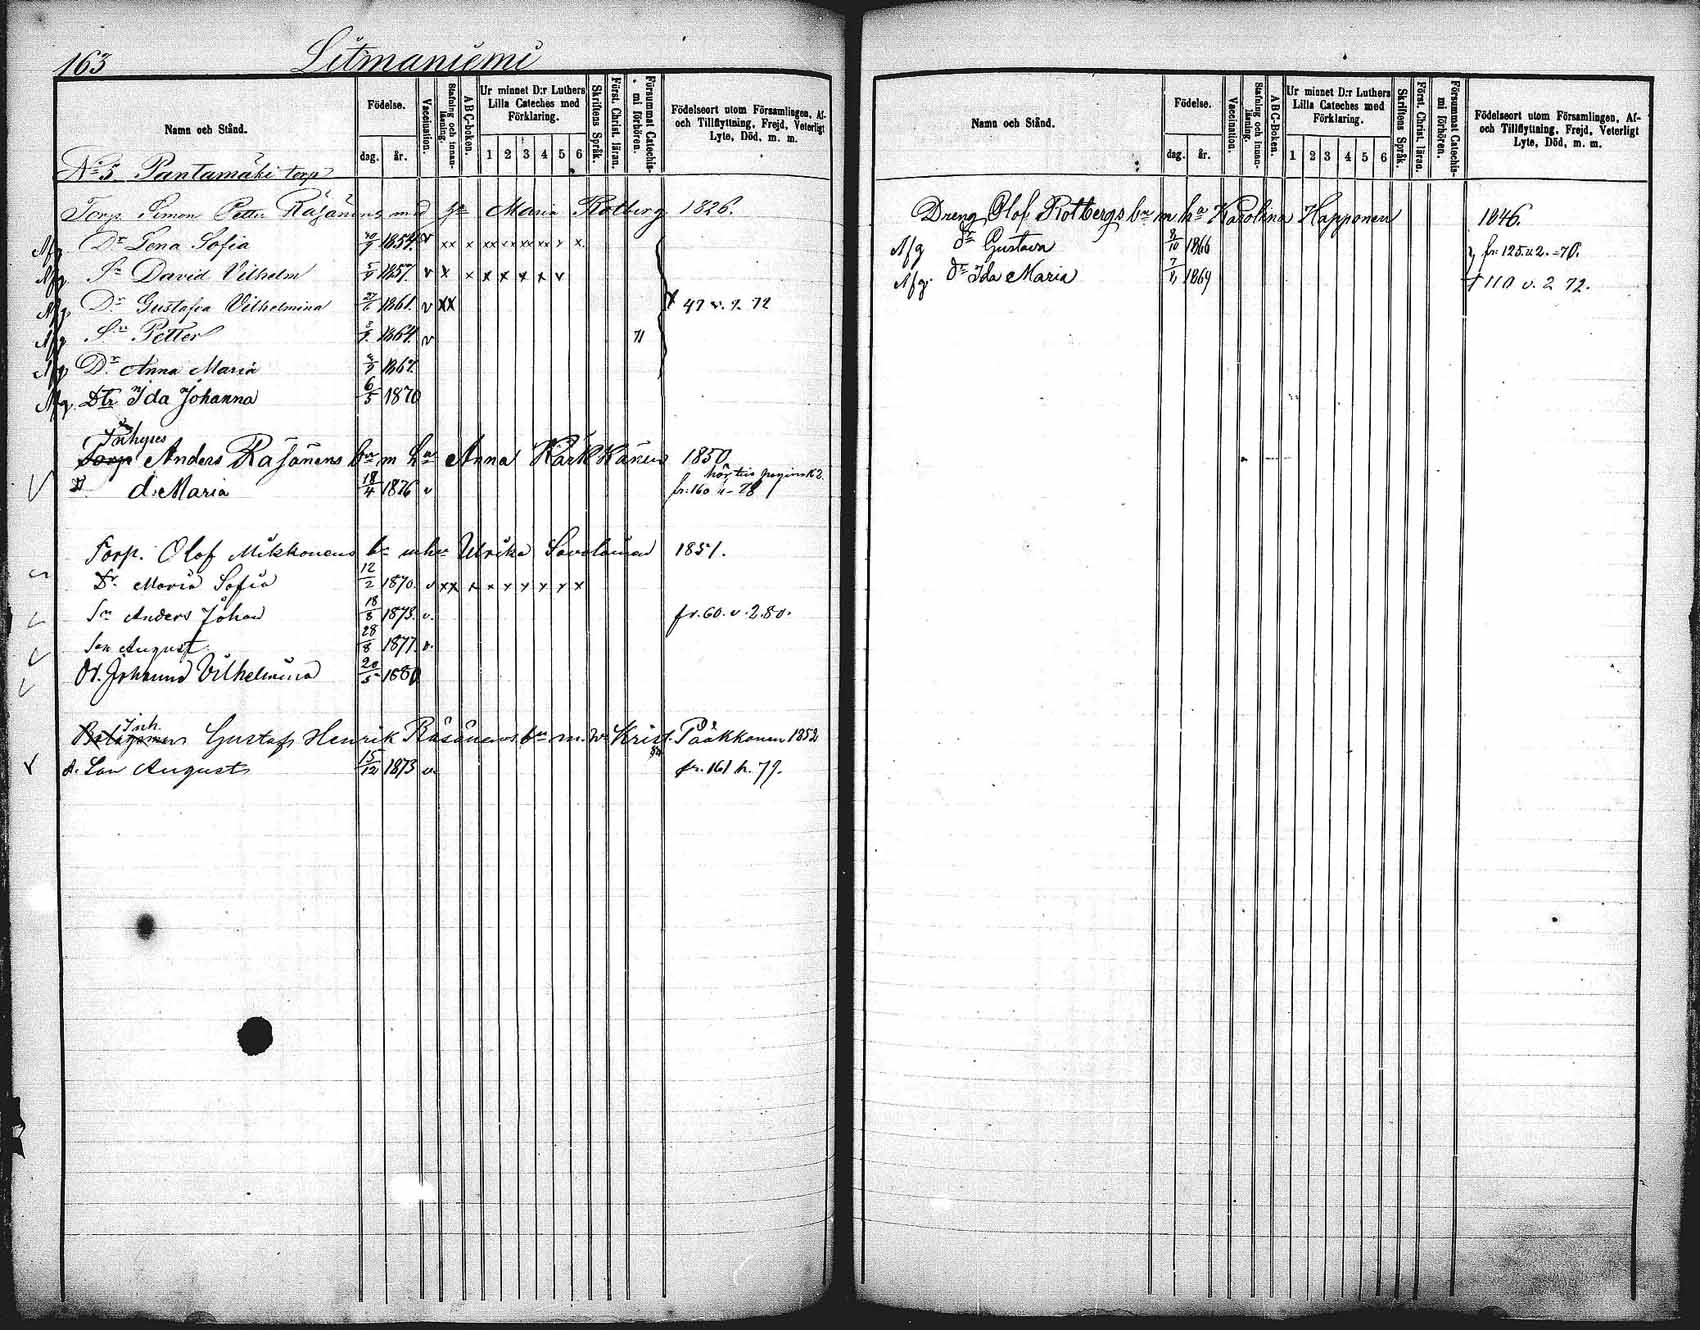 163 Litmaniemi
Namn och Stånd. Födelse. dag. år. Vaccination. Stafning och innanläsning. A B C-boken. Ur minnet D:r Luthers Lilla Cateches med Förklaring. 1 2 3 4 5 6 Skriftens Språk. Först. Christ. läran. Försummat Catechismi förhören. Födelseort utom Församlingen, Af- och Tillflyttning, Frejd, Veterligt Lyte, Död, m. m.
No 5 Pantamäki torp
Torp. Simon Petter Räsänens med Maria Rotberg 1826.
Afg Dr Lena Sofia 1854. v xx x xx xx xx xx x
Afg Sn David Vilhelm 1857. v x x x x x x v
Afg Dr Gustafva Vilhelmina 1861. v xx x 47 v. 2. 72
Afg Sn Petter 1864. v 71
Afg Dr Anna Maria 1867.
Afg. Dtr Ida Johanna 6/5 1870
Inhyses
Torp Anders Räsänens bn m ha Anna Kärkkänen 1850
d. Maria 18/4 1876 v fr. 160 78
Torp. Olof Mikkonens bn Ulrika Savolainen 1851.
Dr. Maria Sofia 12/2 1870. v xx x x x x x x x
Sn Anders Johan 18/8 1873. v. fr. 60. v. 2. 80.
Son August 28/8 1877. v.
Dt. Johanna Vilhelmina 20/5 1880
Inh.
Gustaf Henrik Räsänens bn m. Krist. Pääkkonen 1852
Son August 15/12 1873 v. fr. 161 79.
Namn och Stånd. Födelse. dag. år. Vaccination. Stafning och innanläsning. A B C-Boken. Ur minnet D:r Luthers Lilla Cateches med Förklaring. 1 2 3 4 5 6 Skriftens Språk. Först. Christ. läran. Försummat Catechismi förhören. Födelseort utom Församlingen, Af- och Tillflyttning, Frejd, Veterligt Lyte, Död, m. m.
Dreng Olof Rotbergs bn m ha Karolina Happonen 1846.
Afg dr Gustava 8/10 1866 fr. 125 v. 2. -70.
Afg. dr Ida Maria 7/11 1869 110 v. 2 72.